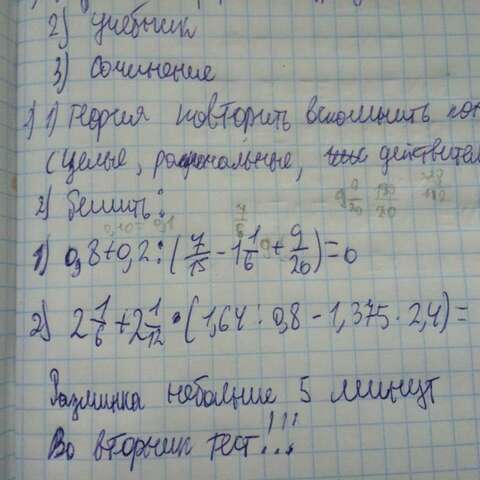 2) учебник
3) сочинение
1) 1) Теория повторить вспомнить
(целые, рациональные, действител
2) Решить:
1) 0,8+0,2:(7/15 - 1 1/6 + 9/20)=0
2) 2 1/6 + 2 1/12 · (1,64 : 0,8 - 1,375 · 2,4)=
Разминка небольше 5 минут
Во вторник тест!!!